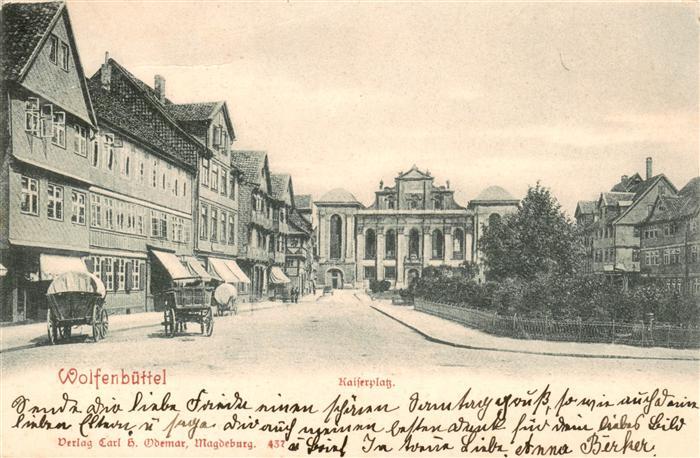 Wolfenbüttel
Kaiserplatz.
Sende dir liebe Friede einen schönen Samstaggruß, so wie auch deine
lieben Eltern, u sage dir auch meinen besten Dank für dein liebes Bild
Verlag Carl H. Odemar, Magdeburg. 437
u Brief In treue Liebe, Anna Berker.